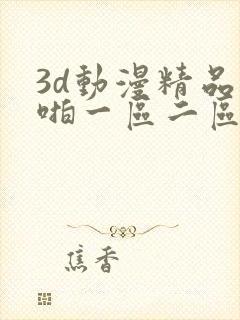 3d動漫精品
啪一區二區
焦香